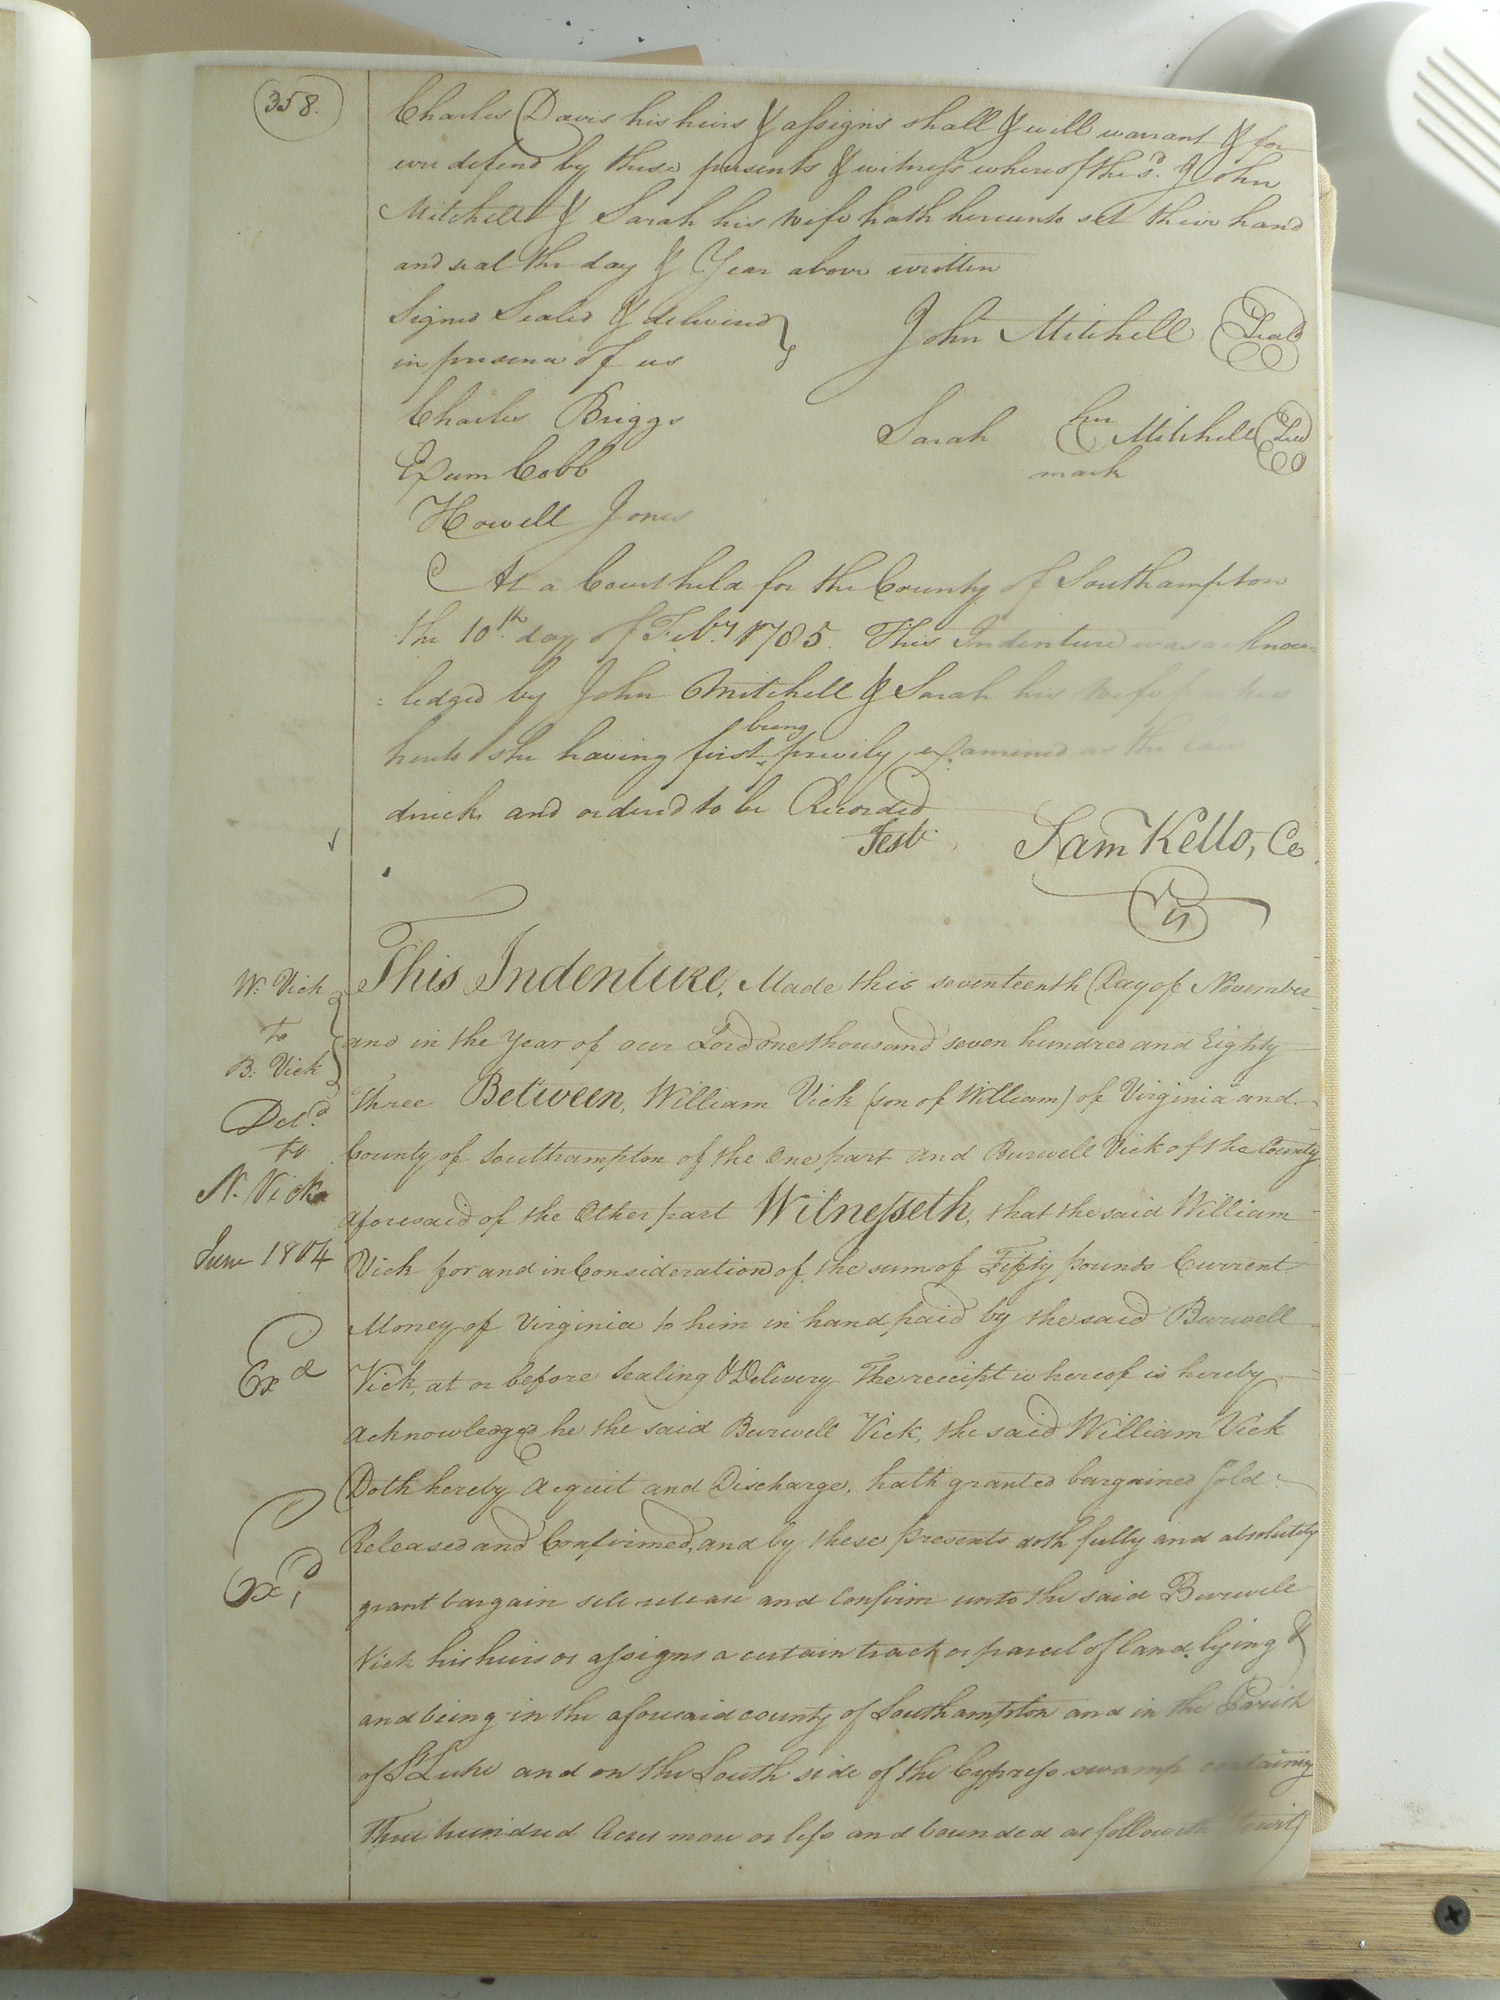 358.
Charles Davis his heirs & assigns shall & will warrant & for
ever defend by these presents & witness whereof the sd. John
Mitchell & Sarah his wife hath hereunto set their hand
and seal the day & Year above written
Signed Sealed & delivered
in presence of us
John Mitchell Seal
Charles Briggs
Sarah her Mitchell Seal
mark
Exum Cobb
Howell Jones
At a Court held for the County of Southampton
the 10th day of Feby 1785. This Indenture was acknow=
=ledged by John Mitchell & Sarah his wife
she having first being privily examined as the law
directs and ordered to be Recorded
Test. Sam Kello, Ce
W. Vick
to
B. Vick
Deld
to
N. Vick
June 1804
Exd
Exd
This Indenture, Made this seventeenth Day of November
and in the Year of our Lord one thousand seven hundred and Eighty
Three Between, William Vick (son of William) of Virginia and
County of Southampton of the One part and Burwell Vick of the County
aforesaid of the Other part Witnesseth, that the said William
Vick for and in Consideration of the sum of Fifty pounds Current
Money of Virginia to him in hand paid by the said Burwell
Vick, at or before Sealing & Delivery The receipt whereof is hereby
Acknowledged he the said Burwell Vick, the said William Vick
Doth hereby Acquit and Discharge, hath granted bargained sold
Released and Confirmed, and by these presents doth fully and absolutely
grant bargain sele release and Confirm unto the said Burwell
Vick his heirs or assigns a certain tract or parcel of land lying &
and being in the aforesaid county of Southampton and in the Parish
of St Luke and on the South side of the Cypress swamp containing
Three hundred Acres more or less and bounded as followeth towit)